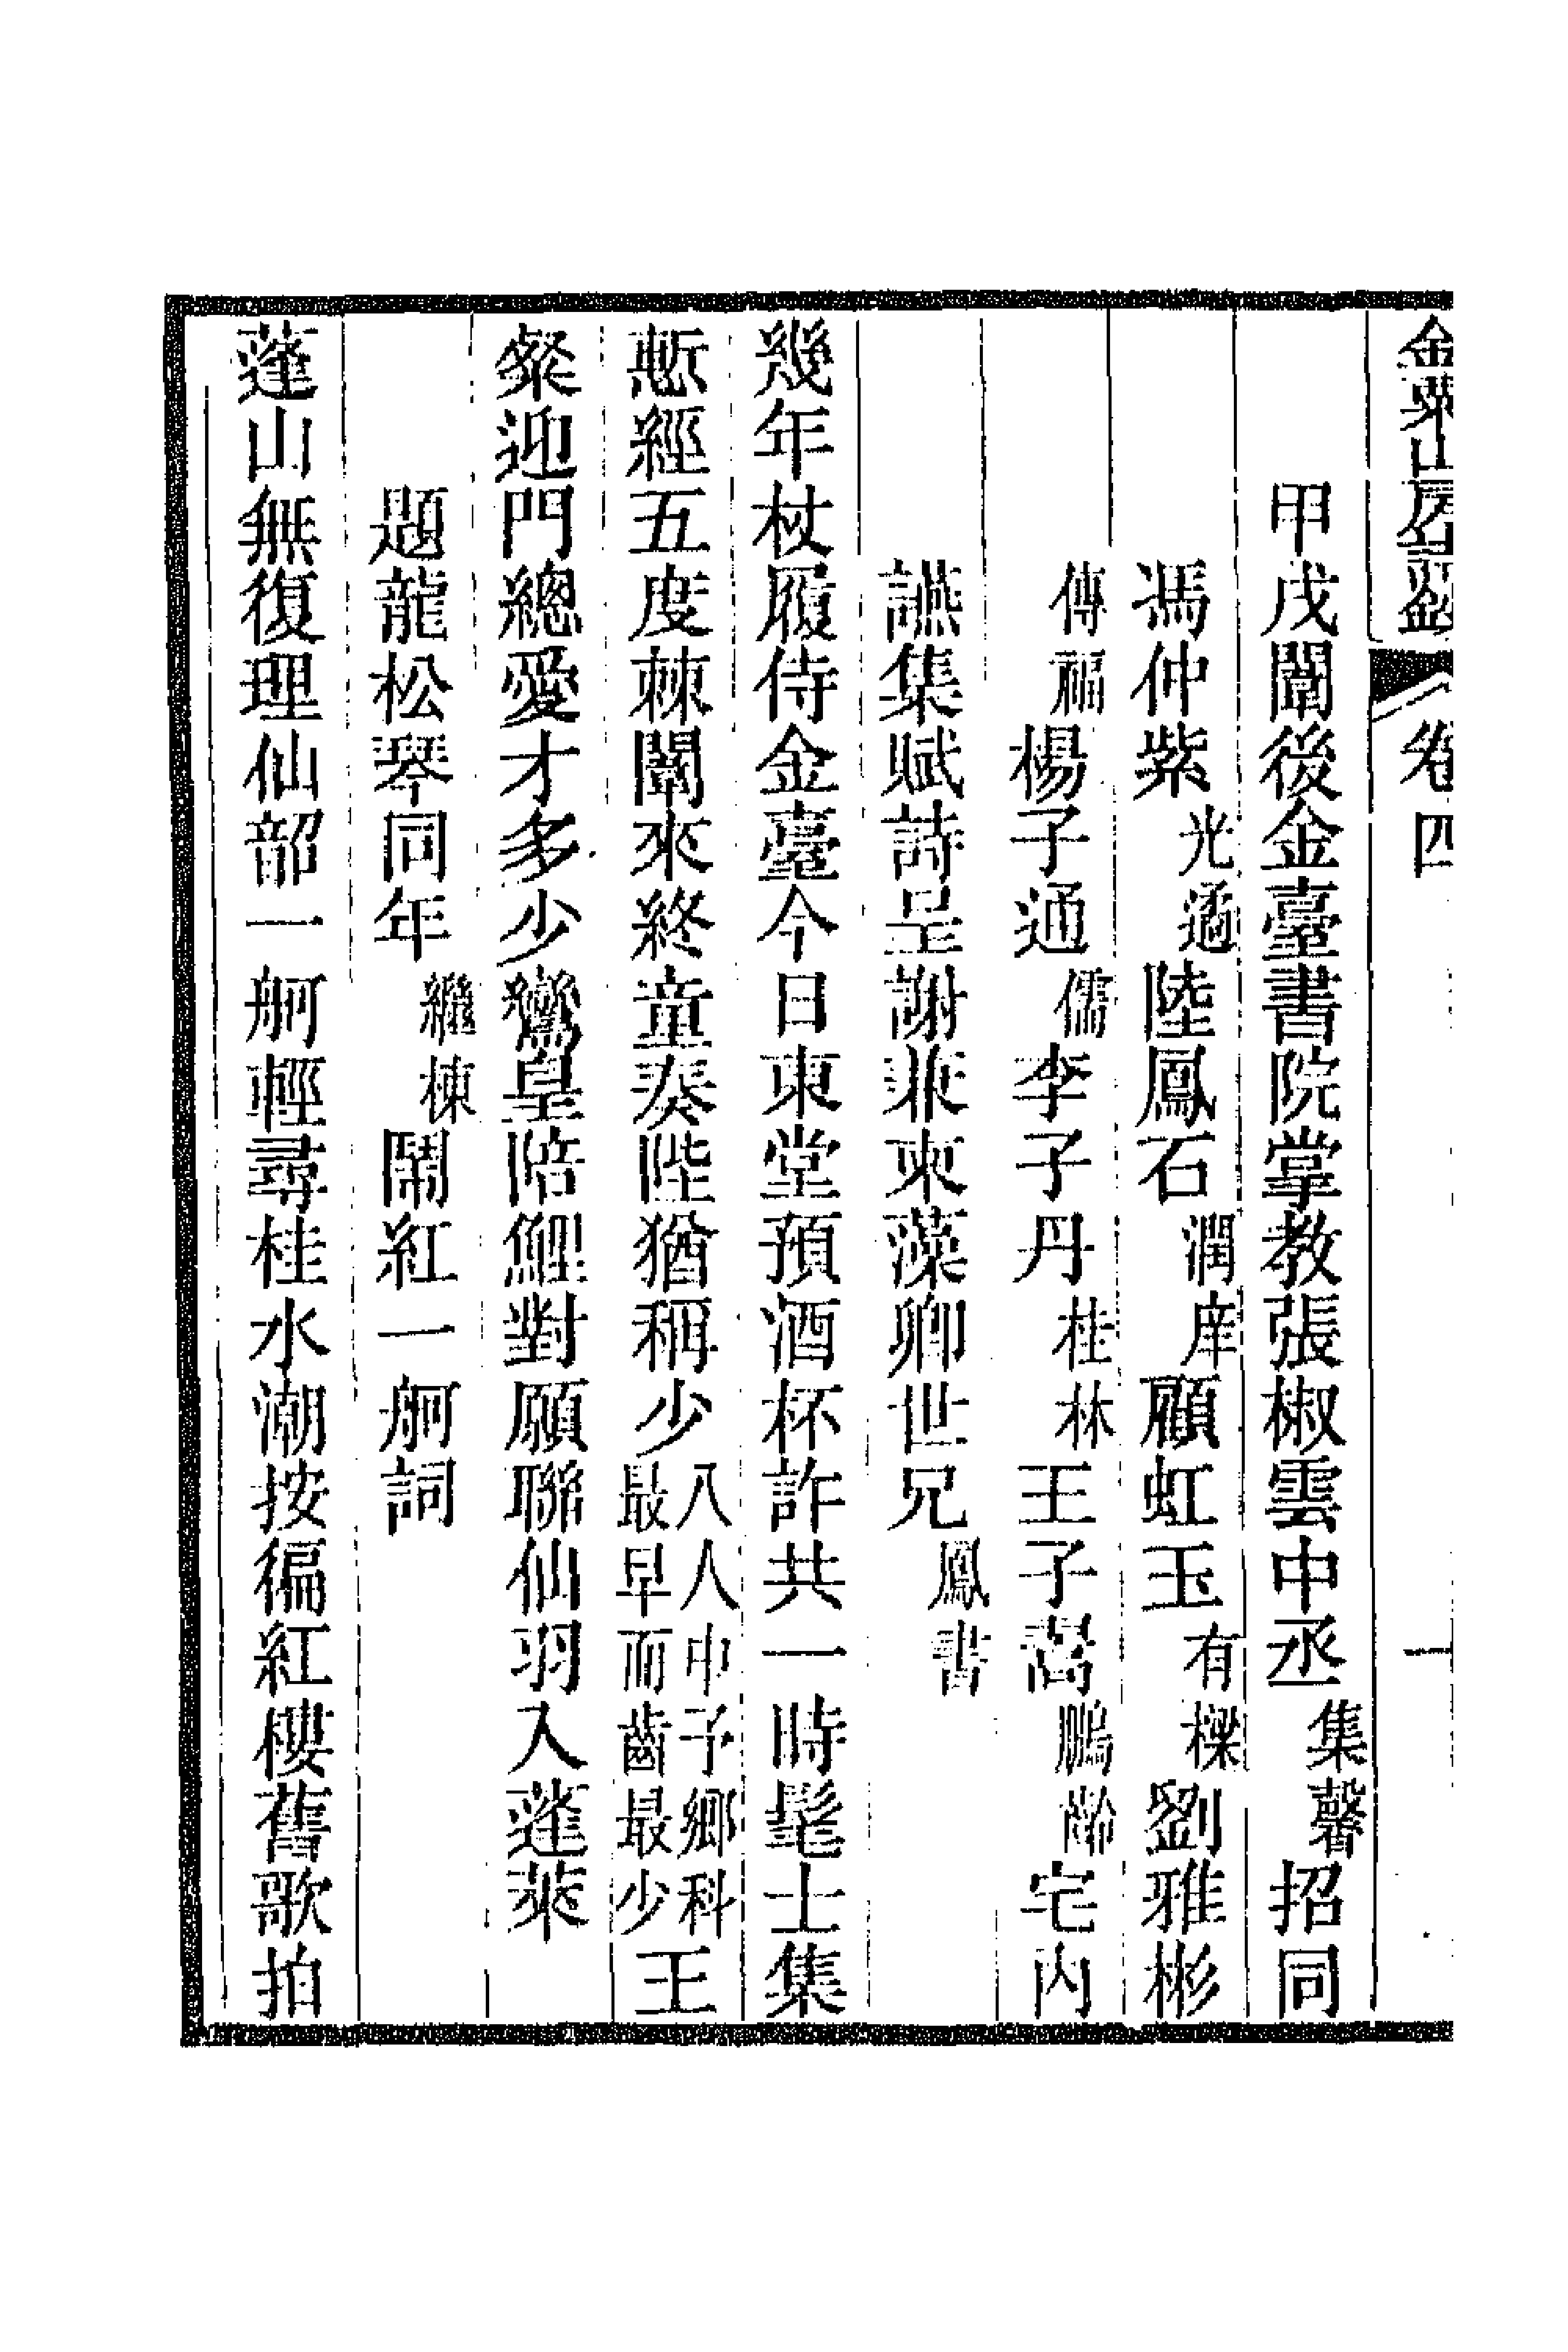 金粟山房詩鈔 卷四 一
甲戌闈後金臺書院掌教張椒雲中丞集馨招同
馮仲紫光遹陸鳳石潤庠顧虹玉有樑劉雅彬
傳福楊子通儒李子丹桂林王子嵩鵬齡宅内
讌集賦詩呈謝兼柬藻卿世兄鳳書
幾年杖履侍金臺今日東堂預酒杯詐共一時髦士集
慙經五度棘闈來終童奏陛猶稱少八人中子鄉科最早而齒最少王
粲迎門總愛才多少鸞皇陪鯉對願聯仙羽入蓬萊
題龍松琴同年繼棟鬧紅一舸詞
蓬山無復理仙韶一舸輕尋桂水潮按徧紅樓舊歌拍